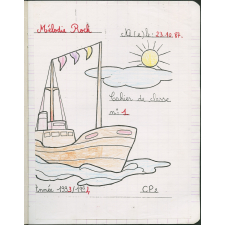 Mélodie Rock
Né(e) le: 23.10.87.
Cahier de classe
n° 1
Année 1993/1994
CP2